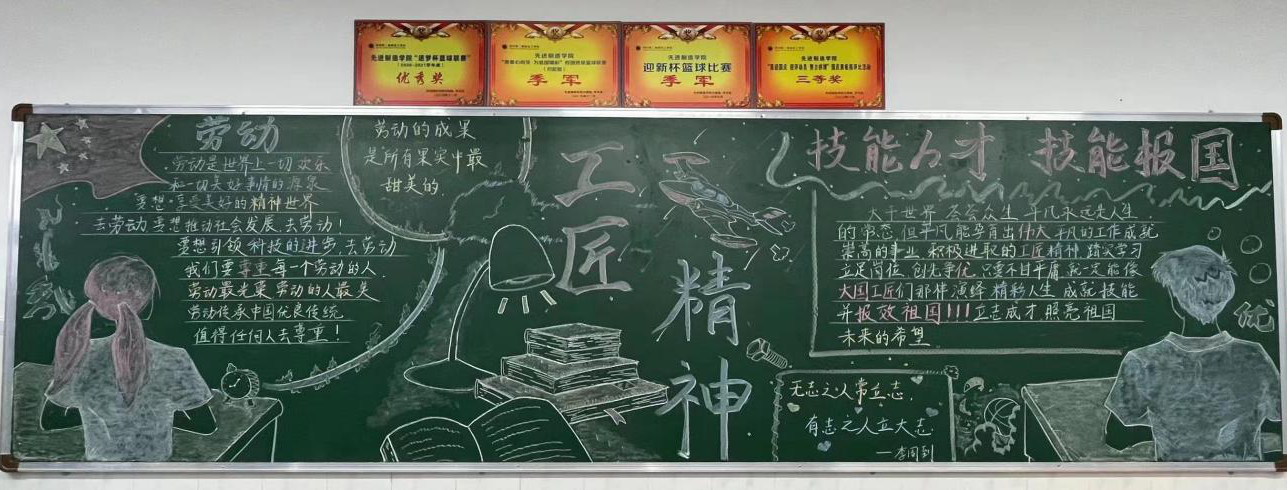 先进制造学院“逐梦杯篮球联赛”
优秀奖
先进制造学院
季军
先进制造学院
迎新杯篮球比赛
季军
先进制造学院
三等奖
劳动
劳动是世界上一切欢乐
和一切美好事情的源泉
要想享受美好的精神世界
去劳动 要想推动社会发展 去劳动!
要想引领科技的进步,去劳动
我们要尊重每一个劳动的人.
劳动最光荣 劳动的人最美
劳动传承中国优良传统
值得任何人去尊重!
劳动的成果
是所有果实中最
甜美的
工匠
精神
技能人才 技能报国
大千世界 芸芸众生 平凡永远是人生
的常态 但平凡能孕育出伟大 平凡的工作成就
崇高的事业 积极进取的工匠精神 踏实学习
立足岗位 创先争优 只要不甘平庸 就一定能像
大国工匠们那样演绎精彩人生 成就技能
并报效祖国!!!立志成才 照亮祖国
未来的希望
优
无志之人常立志.
有志之人立大志.